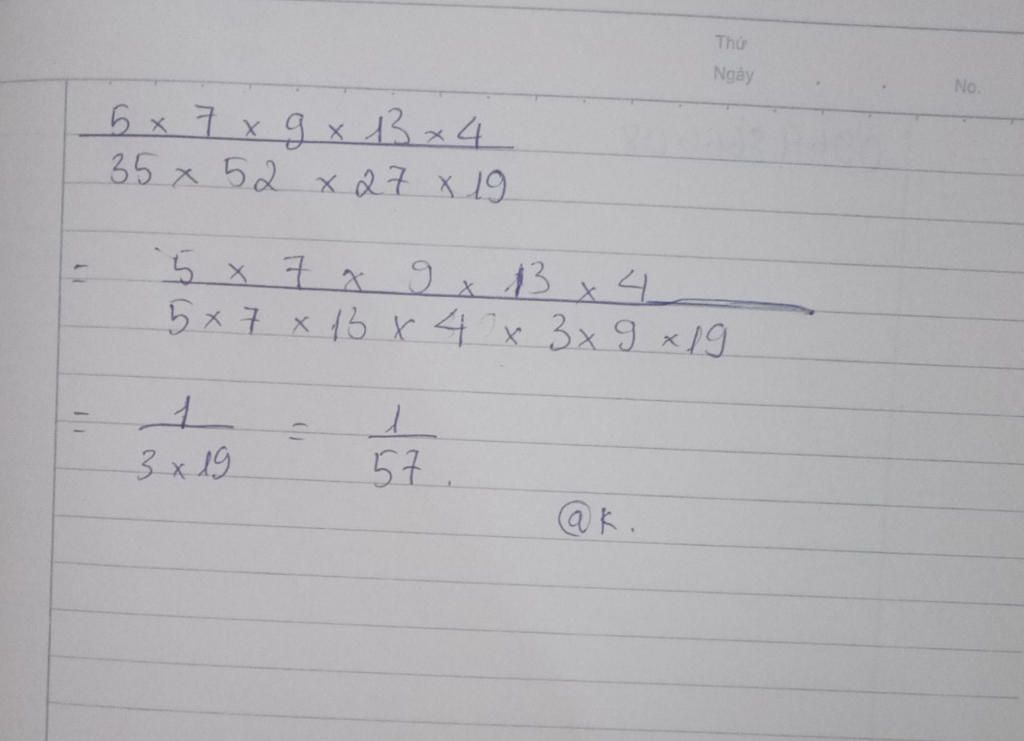 Thứ
Ngày . . No.
5 × 7 × 9 × 13 × 4
35 × 52 × 27 × 19
= 5 × 7 × 9 × 13 × 4
5 × 7 × 13 × 4 × 3 × 9 × 19
= 1 = 1
3 × 19 57.
@K.